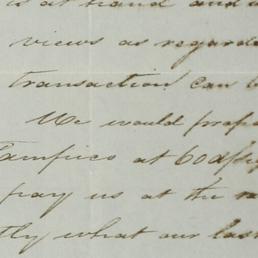 is at hand and
views as regards
transaction can b
We would propo
Tampico at 60 d/s
pay us at the ra
tly what our last